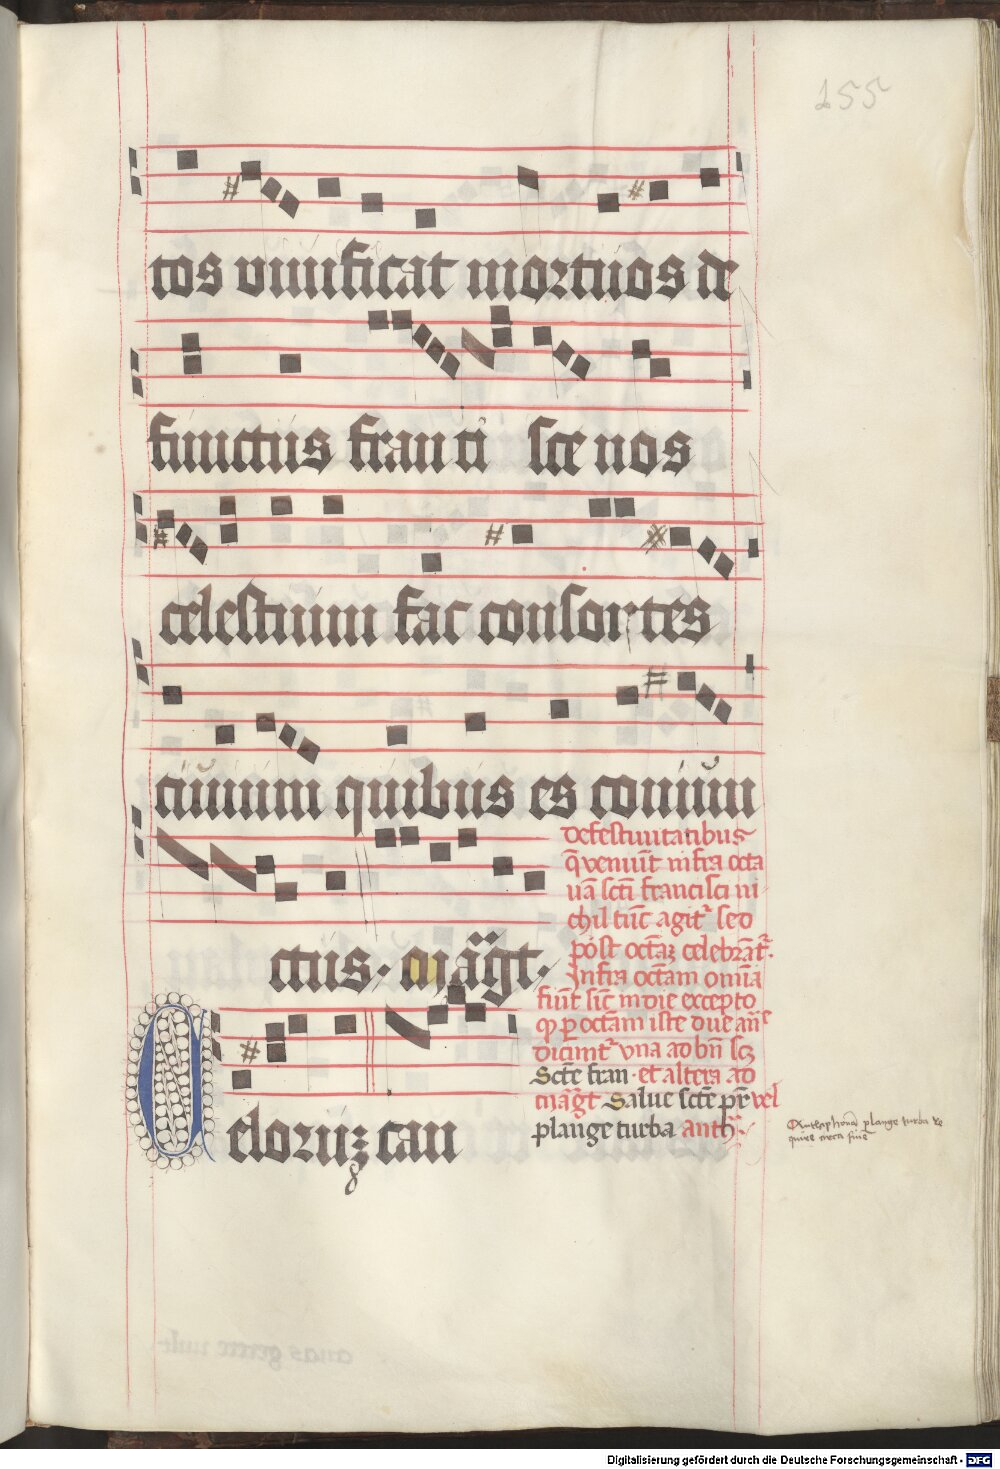 155
tos viuificat mortuos de
functus franci sce nos
celestium fac consortes
ciuium quibus es coniun
ctus· mag̃t·
De festiuitatibus
q̃ veniũt infra octa
uã scti francisci ni
chil tũc agit͛ sed
post octaꝫ celebrãt͛.
Infra octam omĩa
fiũt sic̃ in die excepto
ꝙ ꝑ octam iste due añe
dicunt͛ vna ad bñ scꝫ
Scte fran· et altera ad
mag̃t Salue scte pr̃e vel
plange turba anth̃·
Celoruꝫ can
Antiphonã plange turba re
quire circa finẽ
Digitalisierung gefördert durch die Deutsche Forschungsgemeinschaft - DFG